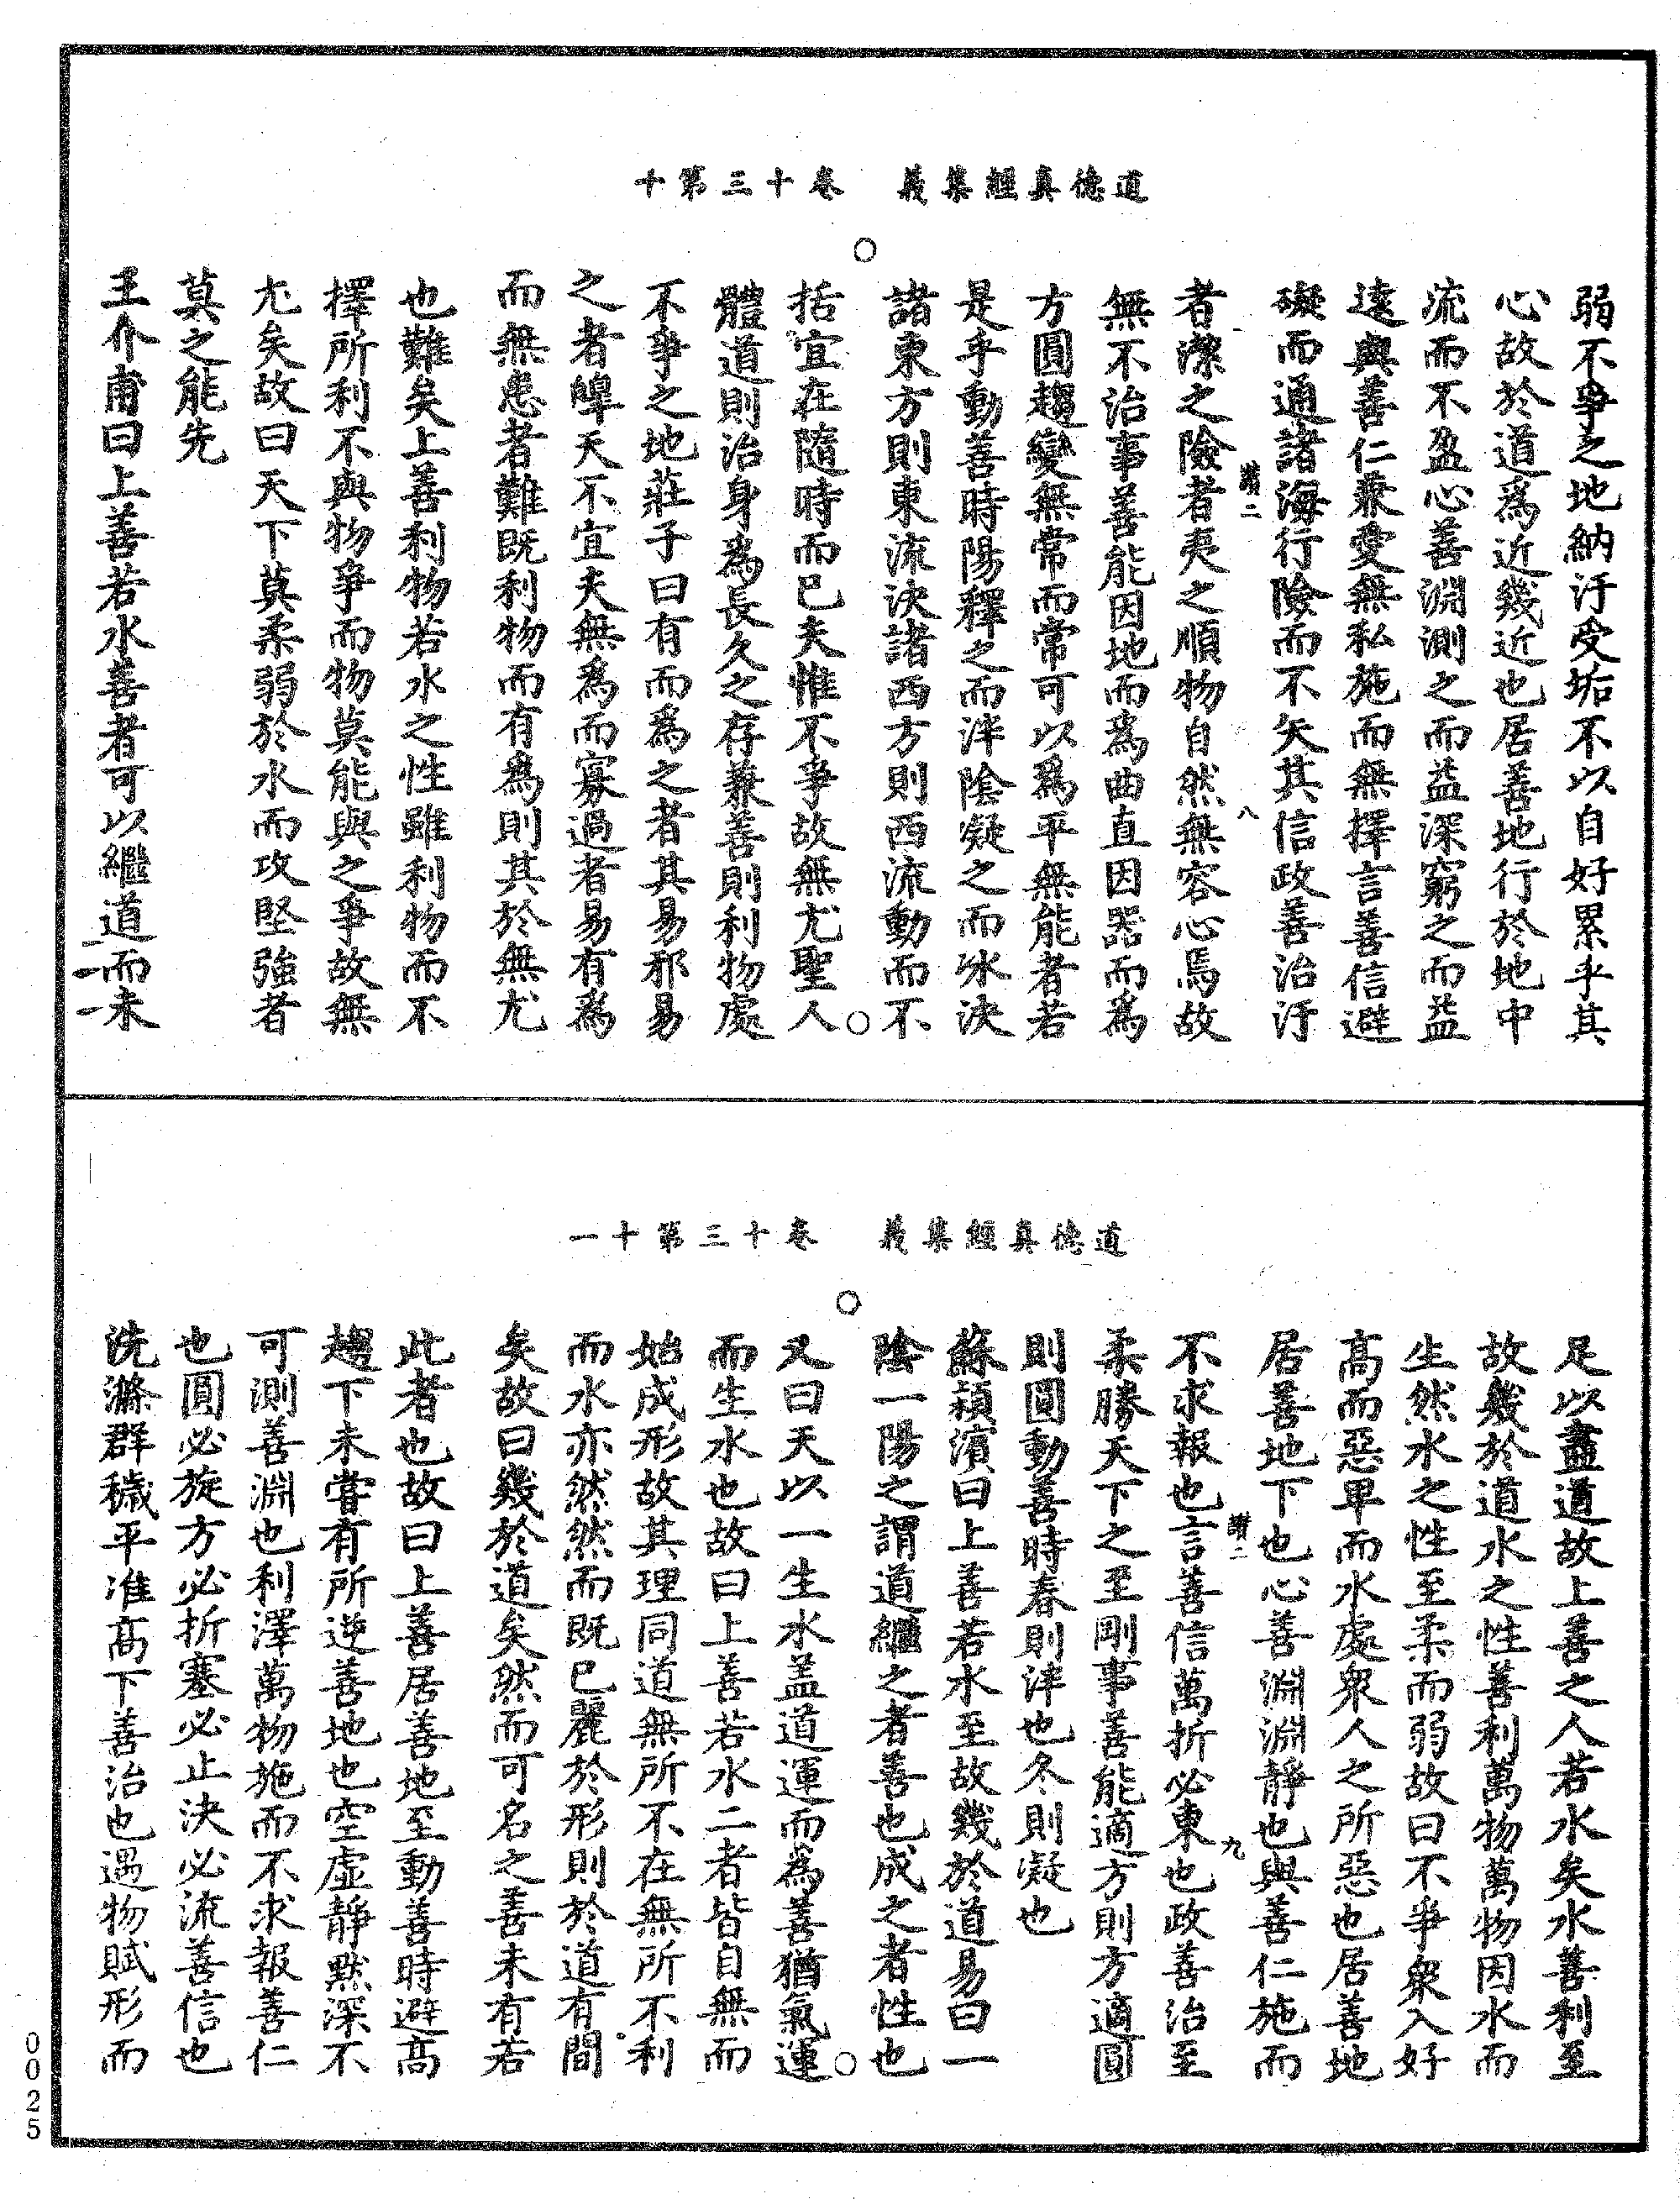 道德真經集義　卷十三第十
弱不爭之地納汙受垢不以自好累乎其
心故於道爲近幾近也居善地行於地中
流而不盈心善淵測之而益深窮之而益
遠與善仁兼愛無私施而無擇言善信避
礙而通諸海行險而不失其信政善治汙
讃二　八
者潔之險者夷之順物自然無容心焉故
無不治事善能因地而爲曲直因器而爲
方圓趨變無常而常可以爲平無能者若
是乎動善時陽釋之而泮陰凝之而冰決
諸東方則東流決諸西方則西流動而不
括宜在隨時而已夫惟不爭故無尤聖人
體道則治身爲長久之存兼善則利物處
不爭之地莊子曰有而爲之者其易邪易
之者皥天不宜夫無爲而寡過者易有爲
而無患者難既利物而有爲則其於無尤
也難矣上善利物若水之性雖利物而不
擇所利不與物爭而物莫能與之爭故無
尤矣故曰天下莫柔弱於水而攻堅強者
莫之能先
王介甫曰上善若水善者可以繼道而未
道德真經集義　卷十三第十一
足以盡道故上善之人若水矣水善利至
故幾於道水之性善利萬物萬物因水而
生然水之性至柔而弱故曰不爭衆人好
高而惡卑而水處衆人之所惡也居善地
居善地下也心善淵淵靜也與善仁施而
讃二　九
不求報也言善信萬折必東也政善治至
柔勝天下之至剛事善能適方則方適圓
則圓動善時春則泮也冬則凝也
蘇潁濱曰上善若水至故幾於道易曰一
陰一陽之謂道繼之者善也成之者性也
又曰天以一生水盖道運而爲善猶氣運
而生水也故曰上善若水二者皆自無而
始成形故其理同道無所不在無所不利
而水亦然然而既已麗於形則於道有間
矣故曰幾於道矣然而可名之善未有若
此者也故曰上善居善地至動善時避高
趨下未嘗有所逆善地也空虛靜默深不
可測善淵也利澤萬物施而不求報善仁
也圓必旋方必折塞必止決必流善信也
洗滌群穢平准高下善治也遇物賦形而
0025